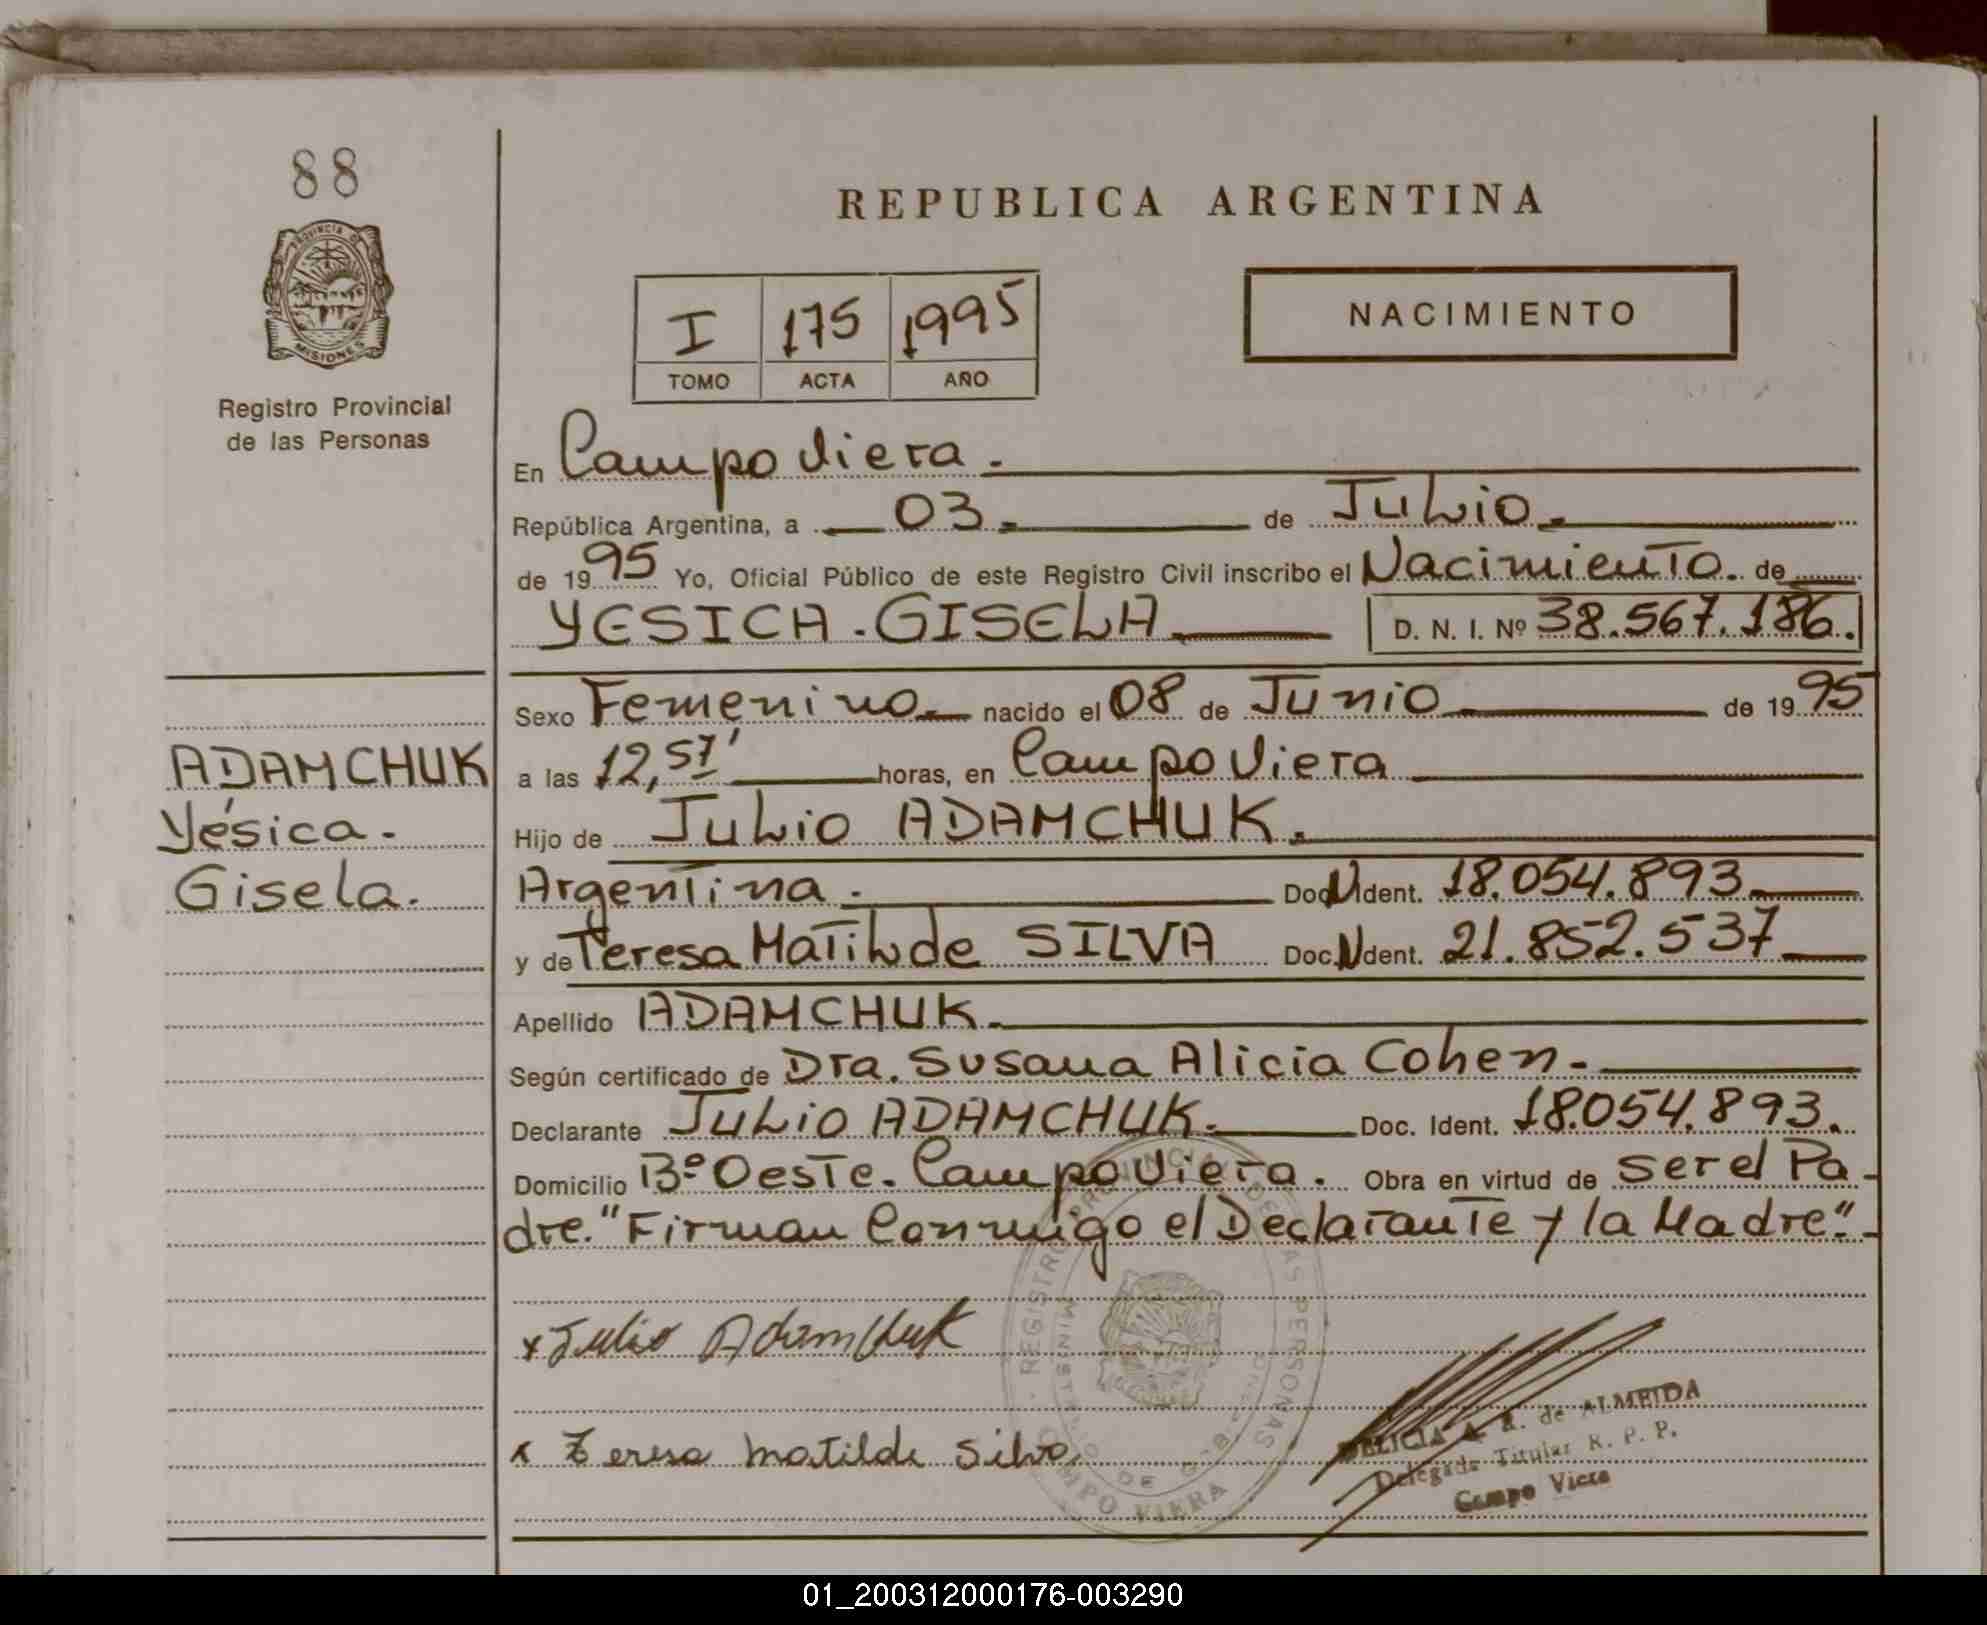 88
PROVINCIA DE
MISIONES
Registro Provincial
de las Personas
REPUBLICA ARGENTINA
I 175 1995
TOMO ACTA AÑO
NACIMIENTO
En Campo Viera.
República Argentina, a 03 de Julio.
de 1995 Yo, Oficial Público de este Registro Civil inscribo el Nacimiento. de
YESICA. GISELA D. N. I. Nº 38.567.186.
Sexo Femenino nacido el 08 de Junio de 1995
a las 12,57' horas, en Campo Viera
Hijo de Julio ADAMCHUK.
Argentina. Doc. N Ident. 18.054.893
y de Teresa Matilde SILVA Doc. N Ident. 21.852.537
Apellido ADAMCHUK.
Según certificado de Dra. Susana Alicia Cohen.
Declarante Julio ADAMCHUK. Doc. Ident. 18.054.893.
Domicilio Bº Oeste. Campo Viera. Obra en virtud de ser el Pa-
dre. "Firman Conmigo el Declarante y la Madre".-
ADAMCHUK
Yésica.
Gisela.
x Julio Adamchuk
x Teresa Matilde Silva
REGISTRO PROVINCIAL DE LAS PERSONAS
MINISTERIO DE GOB.
CAMPO VIERA
DELICIA A. R. de ALMEIDA
Delegada Titular R. P. P.
Campo Viera
01_200312000176-003290